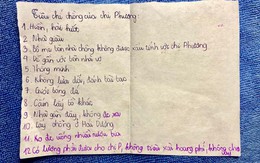 Tiêu chí chồng của chị Phương
1. Hiền, hài hước
2. Nhà giàu
3. Bố mẹ bên nhà chồng không được cau tính với chị Phương
4. Dễ gần với bên nhà vợ
5. Thông minh
6. Không lừa dối, đánh bài bạc
7. Cuộc bóng đá
8. Cấm lấy vợ khác
9. Nhà gần đây, không ở xa
10. Lấy chồng ở Hải Dương
11. Ko đc uống nhiều rượu bia
12. Có lương phải đưa cho chị P, không tiêu xài hoang phí, không